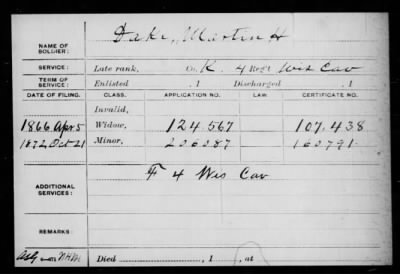 NAME OF SOLDIER: Dake, Martin H
SERVICE: Late rank, Co. K, 4 Reg't Wis Cav
TERM OF SERVICE: Enlisted , 1 Discharged , 1
DATE OF FILING. CLASS. APPLICATION NO. LAW CERTIFICATE NO.
Invalid,
1866 Apr 5 Widow, 124.567 107.438
1872, Oct 21 Minor, 206287 160791
ADDITIONAL SERVICES: F 4 Wis Cav
REMARKS:
Died , 1 , at